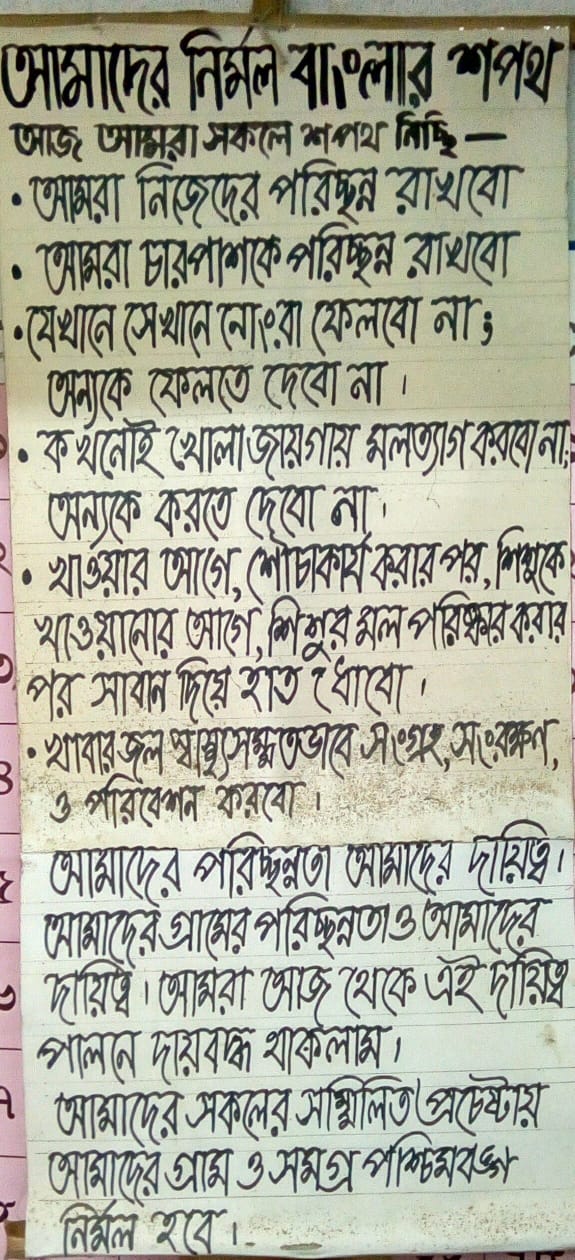 আমাদের নির্মল বাংলার শপথ
আজ আমরা সকলে শপথ নিচ্ছি —
• আমরা নিজেদের পরিচ্ছন্ন রাখবো
• আমরা চারপাশকে পরিচ্ছন্ন রাখবো
• যেখানে সেখানে নোংরা ফেলবো না ;
অন্যকে ফেলতে দেবো না ।
• কখনোই খোলা জায়গায় মলত্যাগ করবো না,
অন্যকে করতে দেবো না ।
• খাওয়ার আগে, শৌচকার্য করার পর, শিশুকে
খাওয়ানোর আগে, শিশুর মল পরিষ্কার করার
পর সাবান দিয়ে হাত ধোবো ।
• খাবার জল স্বাস্থ্যসম্মতভাবে সংগ্রহ, সংরক্ষণ,
ও পরিবেশন করবো ।
আমাদের পরিচ্ছন্নতা আমাদের দায়িত্ব ।
আমাদের গ্রামের পরিচ্ছন্নতাও আমাদের
দায়িত্ব । আমরা আজ থেকে এই দায়িত্ব
পালনে দায়বদ্ধ থাকলাম ।
আমাদের সকলের সম্মিলিত প্রচেষ্টায়
আমাদের গ্রাম ও সমগ্র পশ্চিমবঙ্গ
নির্মল হবে ।